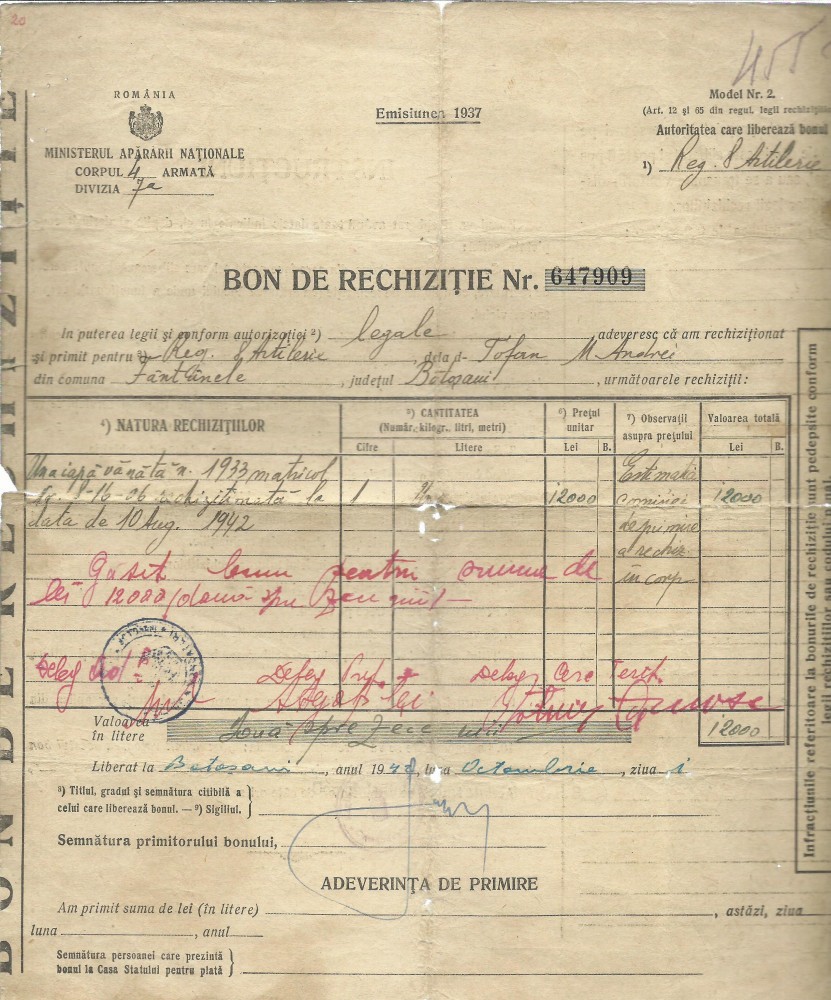 20
455
ROMÂNIA
MINISTERUL APĂRARII NAŢIONALE
CORPUL 4 ARMATĂ
DIVIZIA 7a
Emisiunea 1937
Model Nr. 2.
(Art. 12 şi 65 din regul. legii
Autoritatea care liberează bonul
1) Reg. 8 Artilerie
BON DE RECHIZIŢIE Nr. 647909
In puterea legii şi conform autorizaţiei 2) legale, adeveresc că am rechiziţionat
şi primit pentru 3) Reg. 8 Artilerie, dela d- Tofan M Andrei
din comuna Fântânele, judeţul Botoşani, următoarele rechiziţii:
4) NATURA RECHIZIŢIILOR
5) CANTITATEA
(Număr, kilogr., litri, metri)
Cifre
Litere
6) Preţul unitar
Lei B.
7) Observaţii asupra preţului
Valoarea totală
Lei B.
Una iapă vânătă n. 1933 matricol
16-06 rechiziţionată la
data de 10 Aug. 1942
1
12000
Estimată
comisiei
de primire
a rechiz
in corp
12000
Găsit bun pentru suma de
lei 12000 (două spre zece mii)
Valoarea în litere Două spre zece mii
12000
Liberat la Botoşani, anul 1948, luna Octombrie, ziua 1
8) Titlul, gradul şi semnătura citibilă a
celui care liberează bonul. — 9) Sigiliul.
Semnătura primitorului bonului,
ADEVERINŢA DE PRIMIRE
Am primit suma de lei (în litere) , astăzi, ziua
luna , anul
Semnătura persoanei care prezintă
bonul la Casa Statului pentru plată
BON DE RECHIZIŢIE
Infracţiunile referitoare la bonurile de rechiziţie sunt pedepsite conform
legii rechiziţiilor sau codului